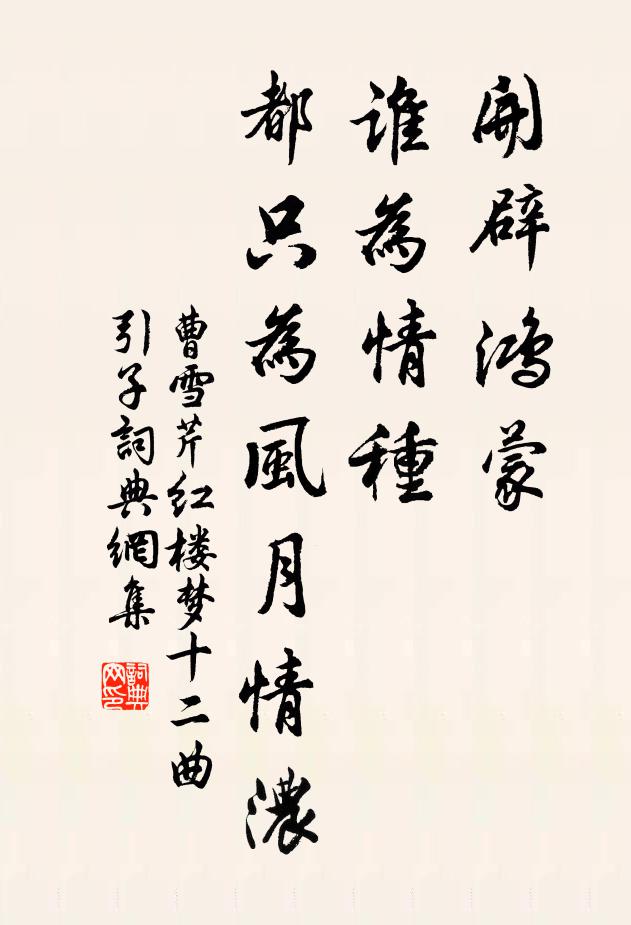 開辟鴻蒙
誰為情種
都只為風月情濃
曹雪芹红楼梦十二曲
引子詞典網集
詞典網印